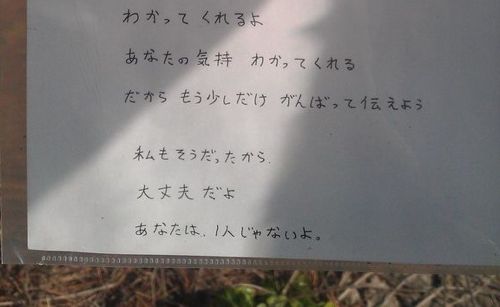 わかってくれるよ
あなたの気持 わかってくれる
だから もう少しだけ がんばって伝えよう
私もそうだったから.
大丈夫だよ
あなたは、1人じゃないよ。